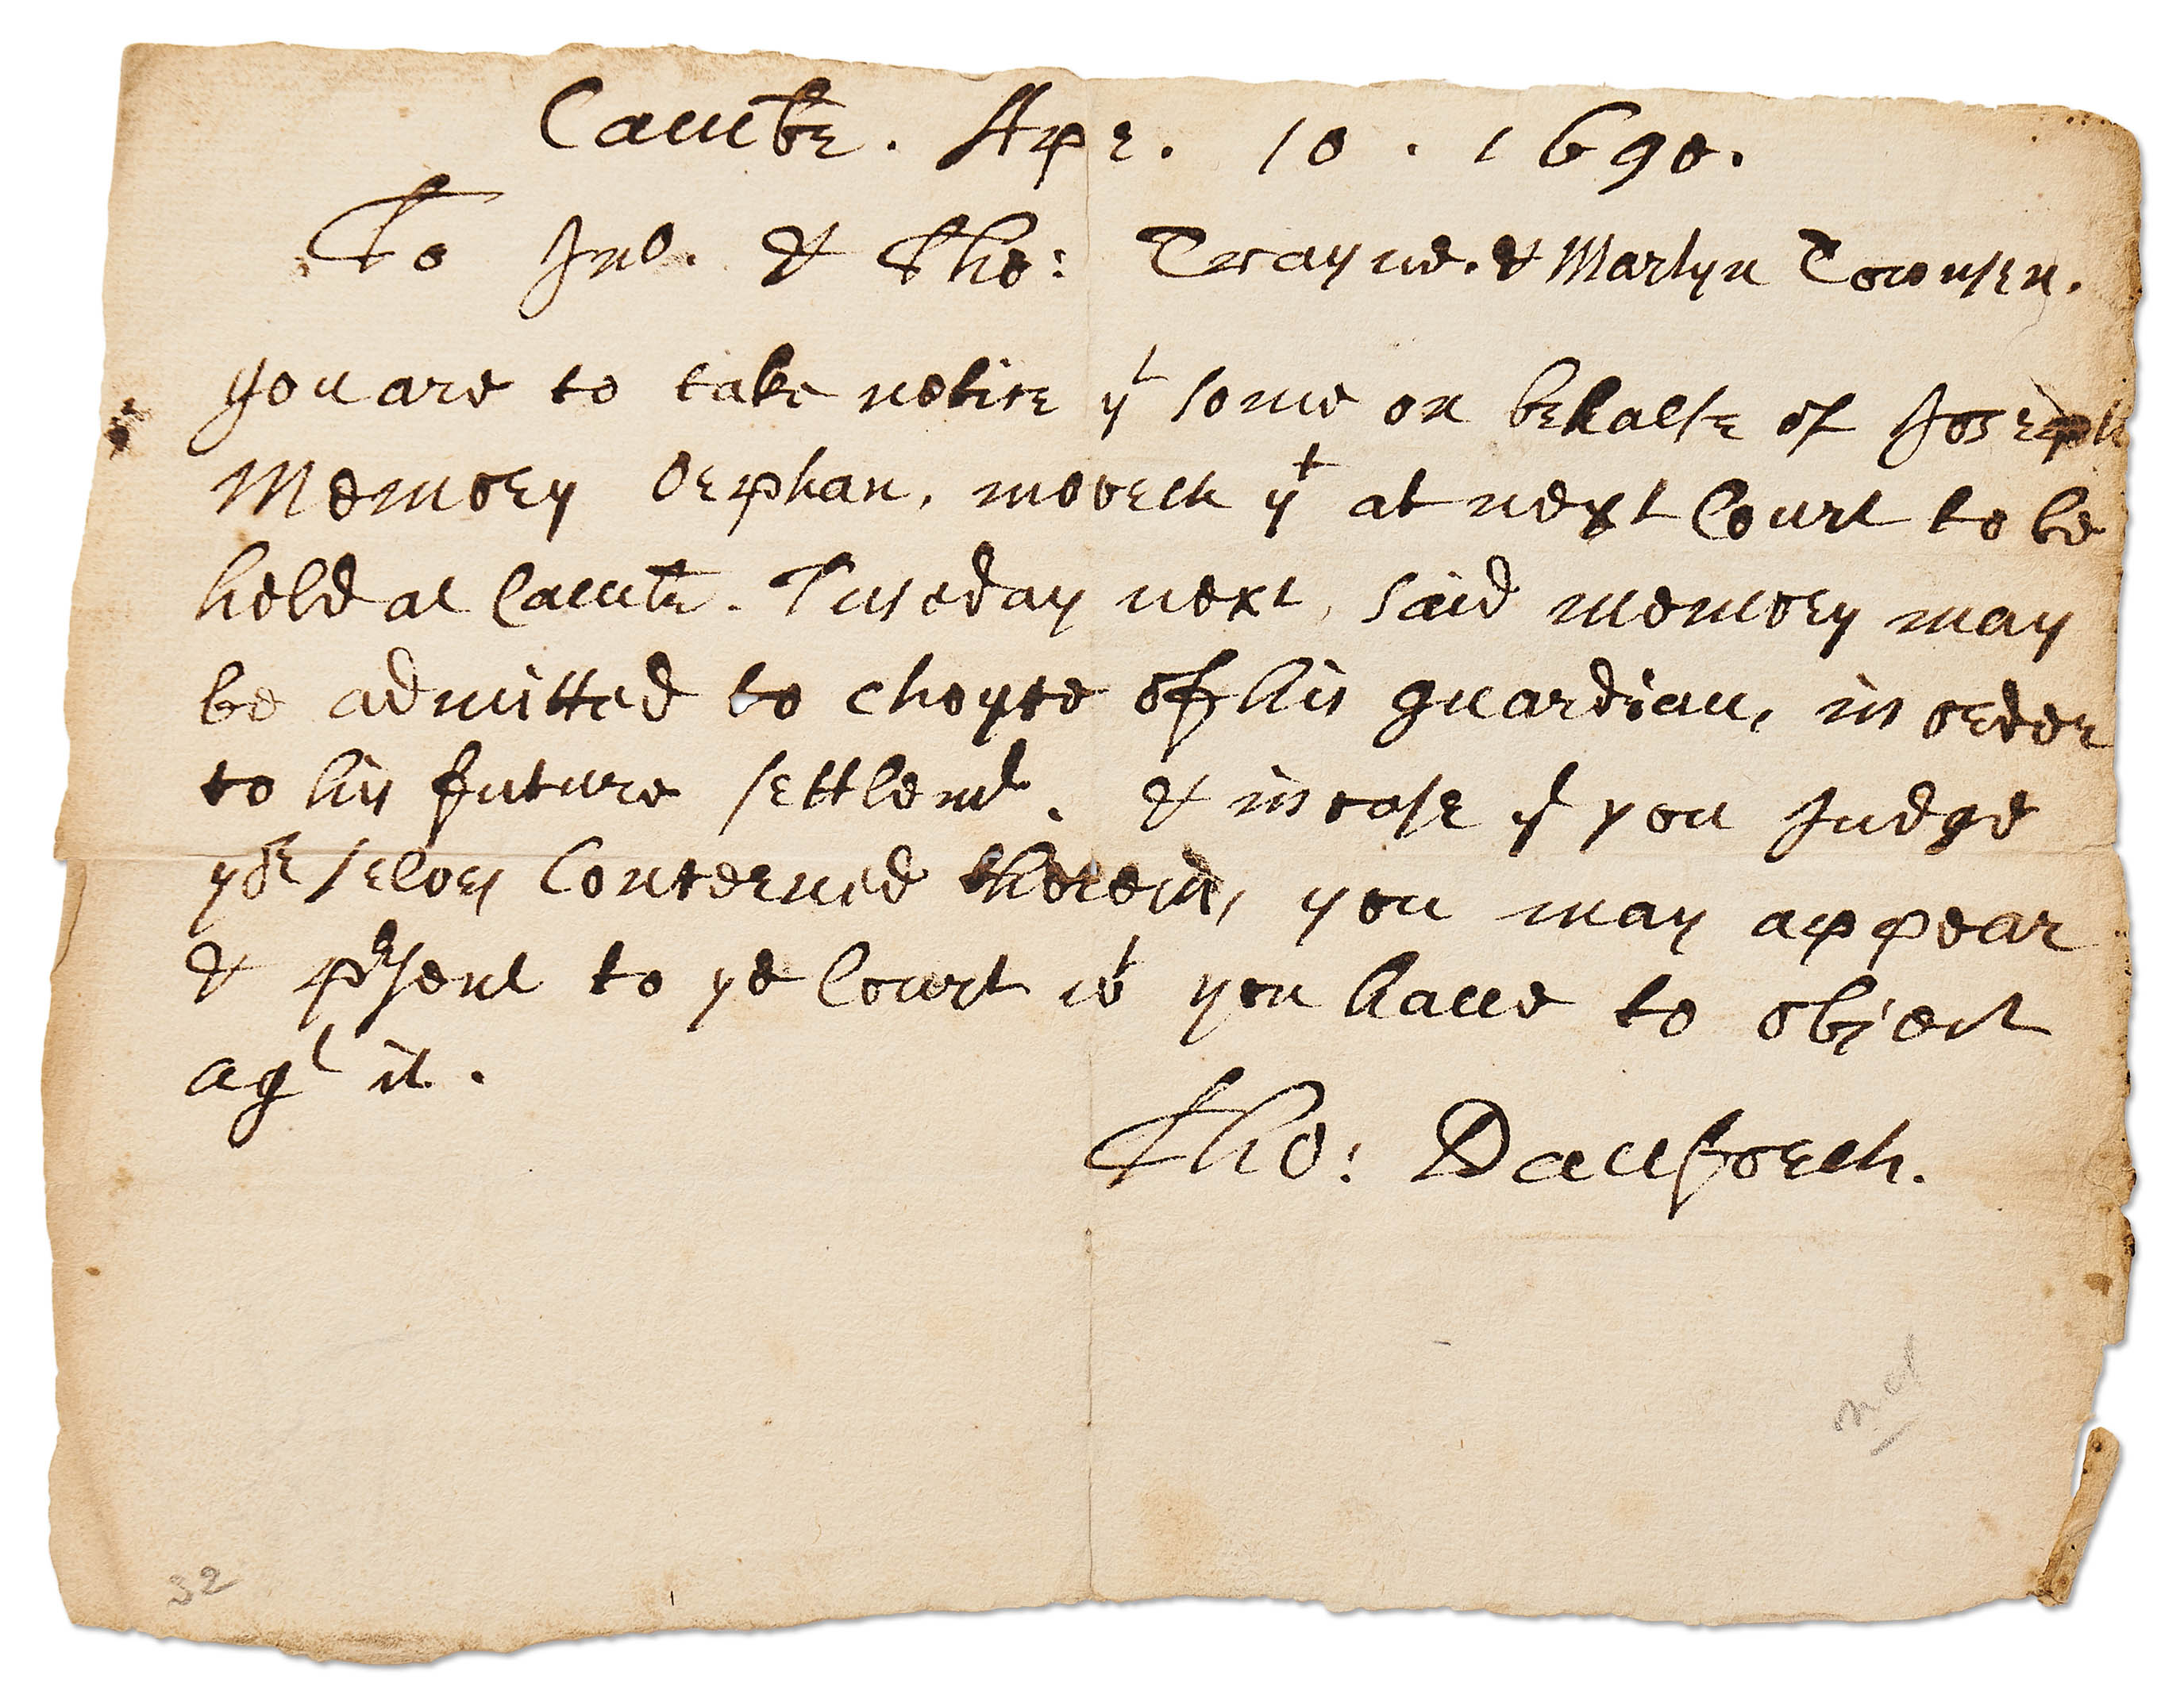 Camb͞r. Apr. 10. 1690.
To Jno. & Tho: Trayne. & Martyn Townsen.
you are to take notice yt some on behalfe of Joseph
Memory Orphan, moveth yt at next Court to be
held at Camb͞r. Tuseday next, said memory may
be admitted to choyce of his guardian, in order
to his future settlemt. & in case yt you Judge
yor selves Concerned therein, you may appear
& prsent to ye Court wt you haue to object
agt it.
Tho: Danforth.
32